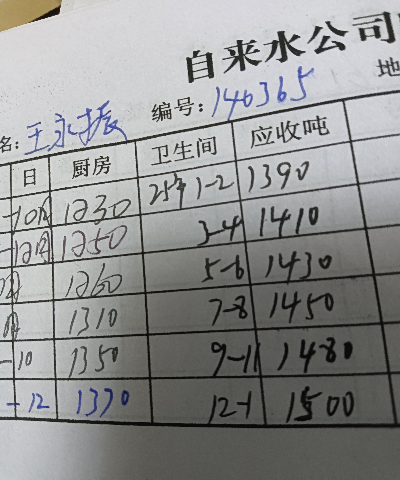 自来水公司
名: 王永振 编号: 146365 地
日 厨房 卫生间 应收吨
-10月 1230 25年 1-2 1390
-12月 1250 3-4 1410
月 1260 5-6 1430
月 1310 7-8 1450
-10 1350 9-11 1480
-12 1370 12-1 1500